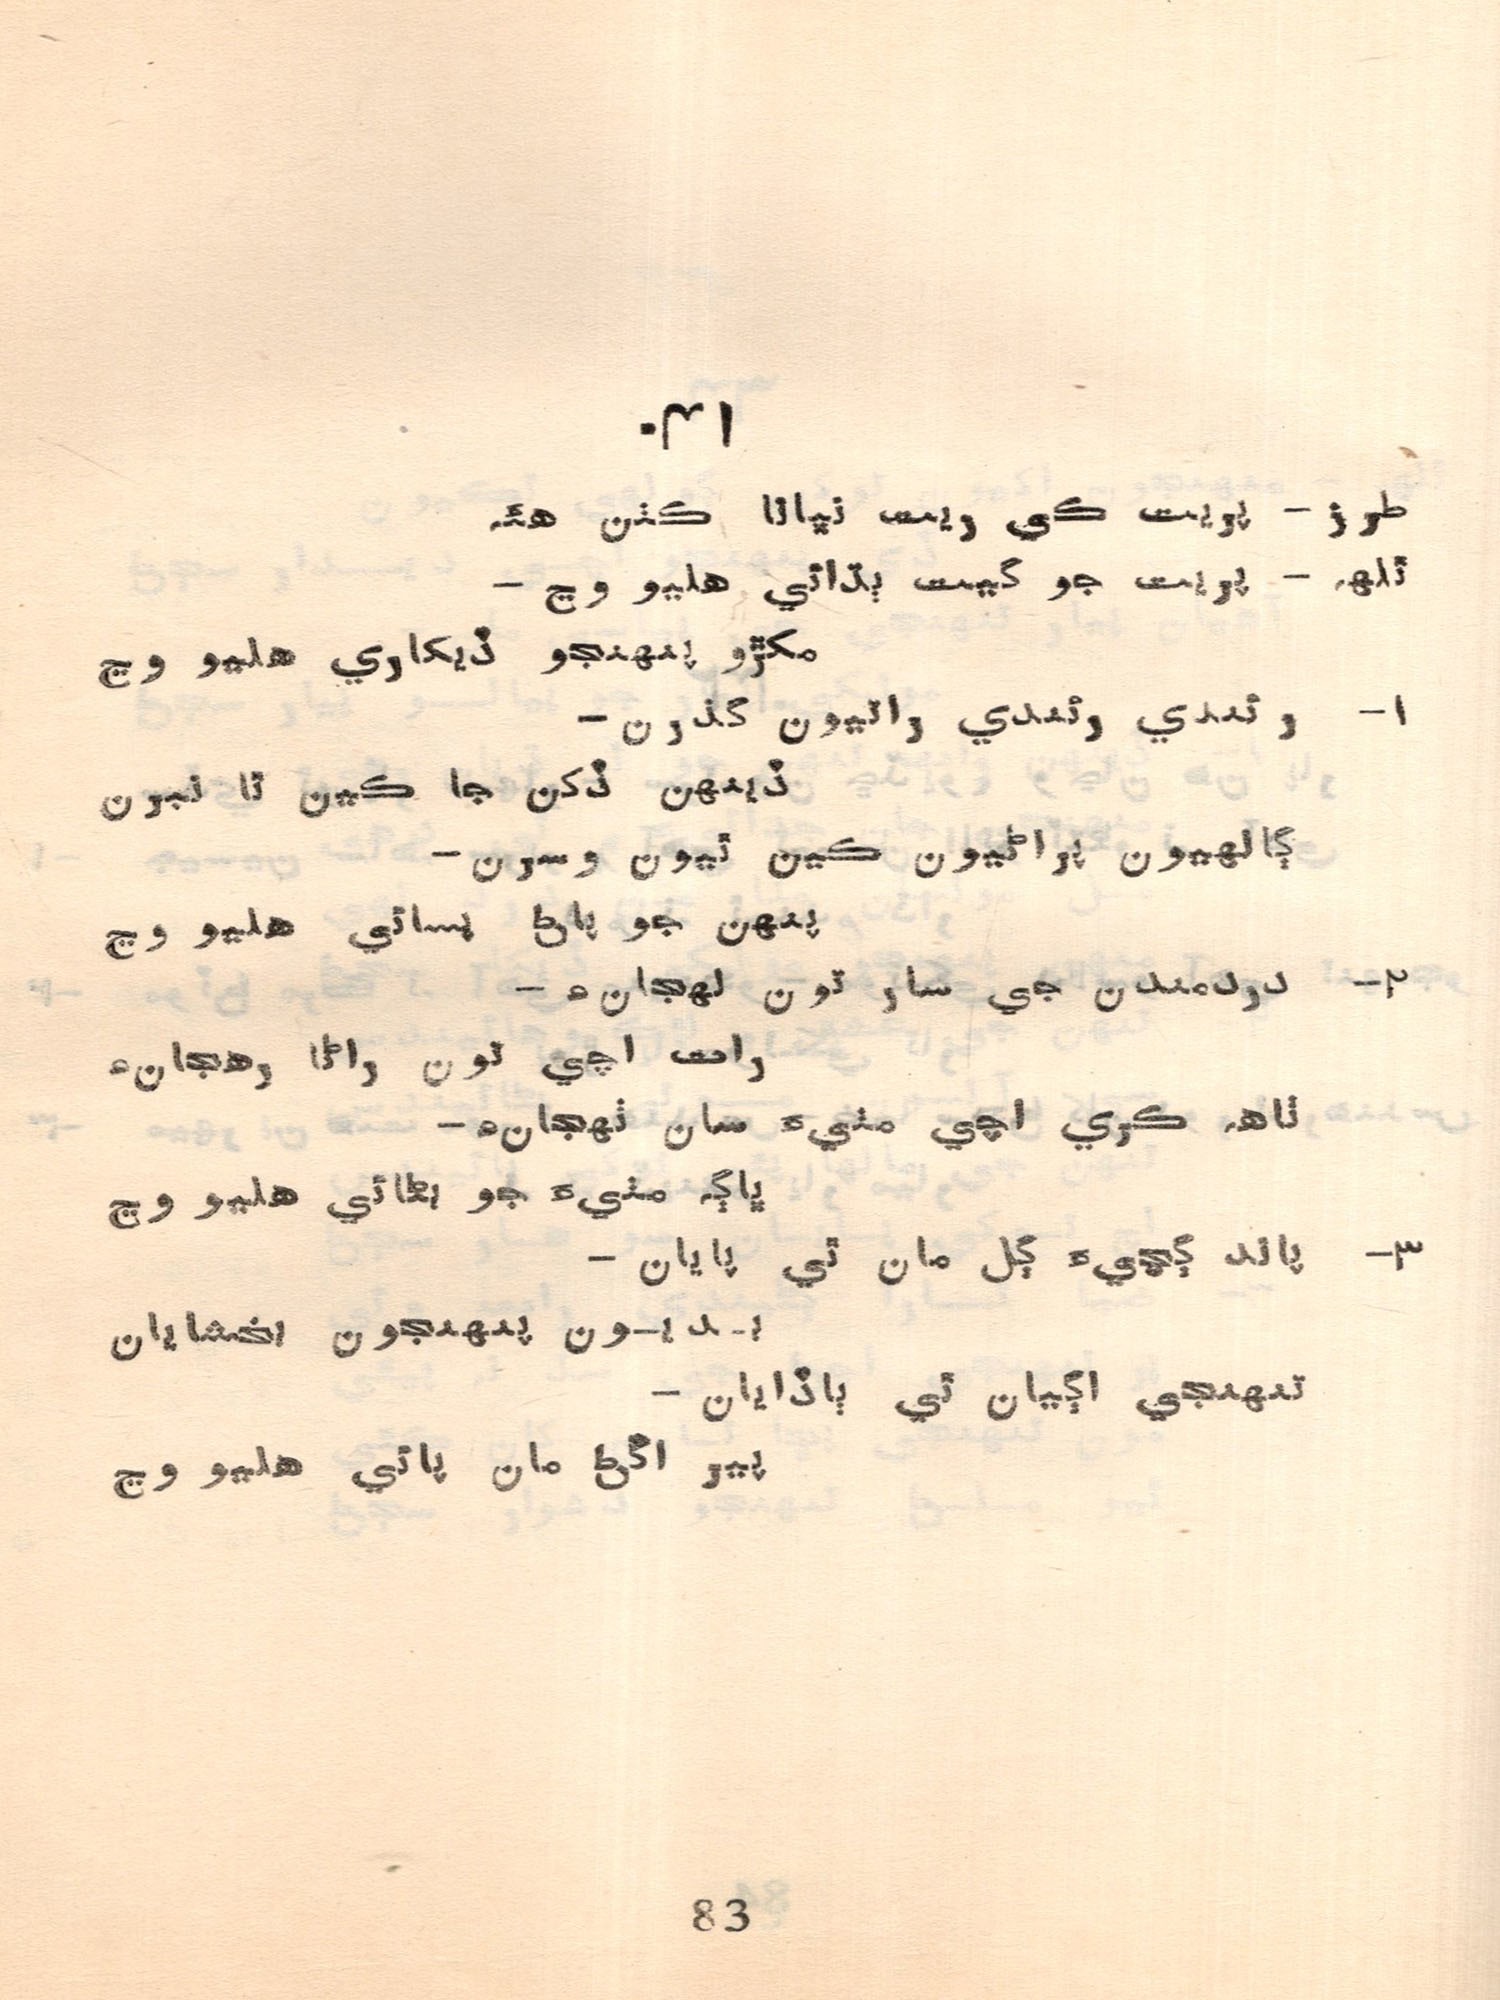 ۱۴۰
طرز - پريت ڪي ريت نڀانا ڪٺن هئه
ٿلهہ - پريت جو گيت ٻڌائي هليو وڃ -
مکڙو پنهنجو ڏيکاري هليو وڃ
۱- رئندي رئندي راتيون گذرن -
ڏينهن ڏکن جا ڪين ٿا نبرن
ڳالهيون پراڻيون ڪين ٿيون وسرن -
پنهن جو پاڻ پسائي هليو وڃ
۲- دردمندن جي سار تون لهجانءِ -
رات اچي تون راڻا رهجانءِ
ٺاهہ ڪري اچي مٺيءَ سان ٺهجانءِ -
ڀاڳہ مٺيءَ جو بڻائي هليو وڃ
۳- پاند ڳچيءَ ڳل مان ٿي پايان -
بديون پنهنجون بخشايان
تنهنجي اڳيان ٿي ٻاڏايان -
پير اڱڻ مان پائي هليو وڃ
83